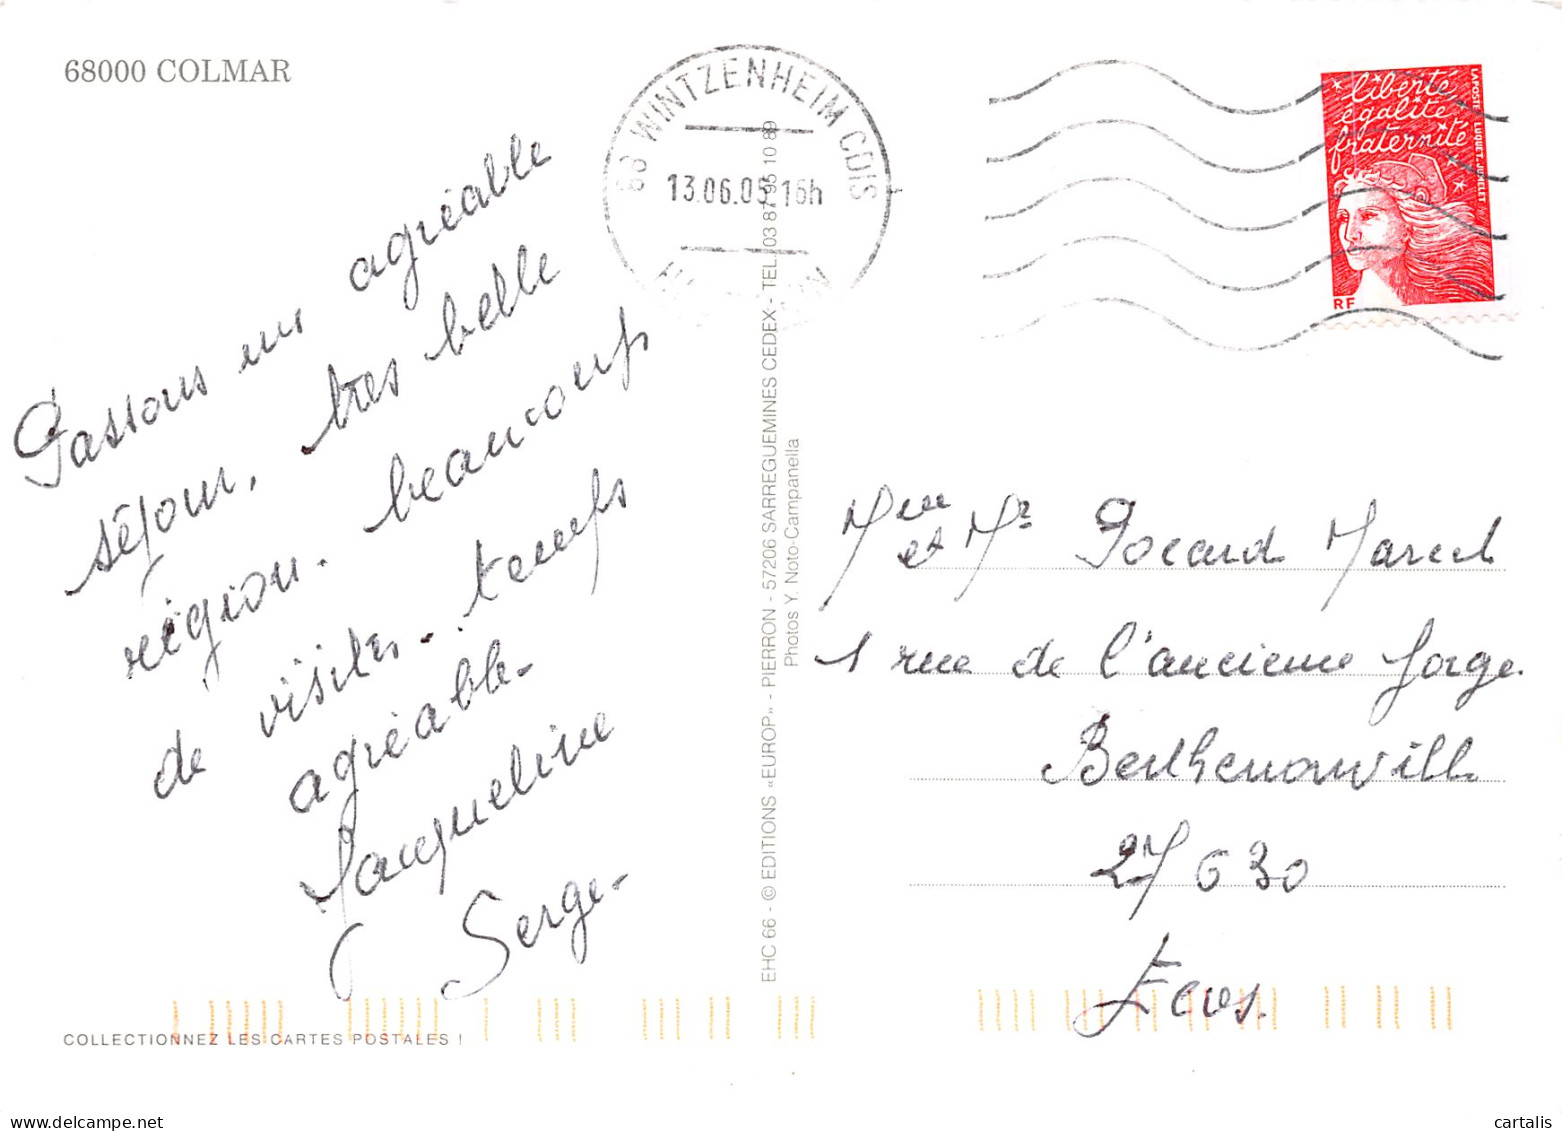 68000 COLMAR
Passons un agréable
séjour, très belle
région. beaucoup
de visites. temps
agréable.
Jacqueline
Serge.
COLLECTIONNEZ LES CARTES POSTALES !
EHC 66 - © EDITIONS «EUROP» - PIERRON - 57206 SARREGUEMINES CEDEX - TEL. 03 87 95 10 89
Photos Y. Noto-Campanella
68 WINTZENHEIM CDIS
13.06.05 16h
HAUT RHIN
liberté
égalité
fraternité
LA POSTE LUQUET-JUMELET
RF
Mme
et Mr Pocard Marcel
1 rue de l'ancienne forge.
Berthenonville
27 630
Ecos.
cartalis